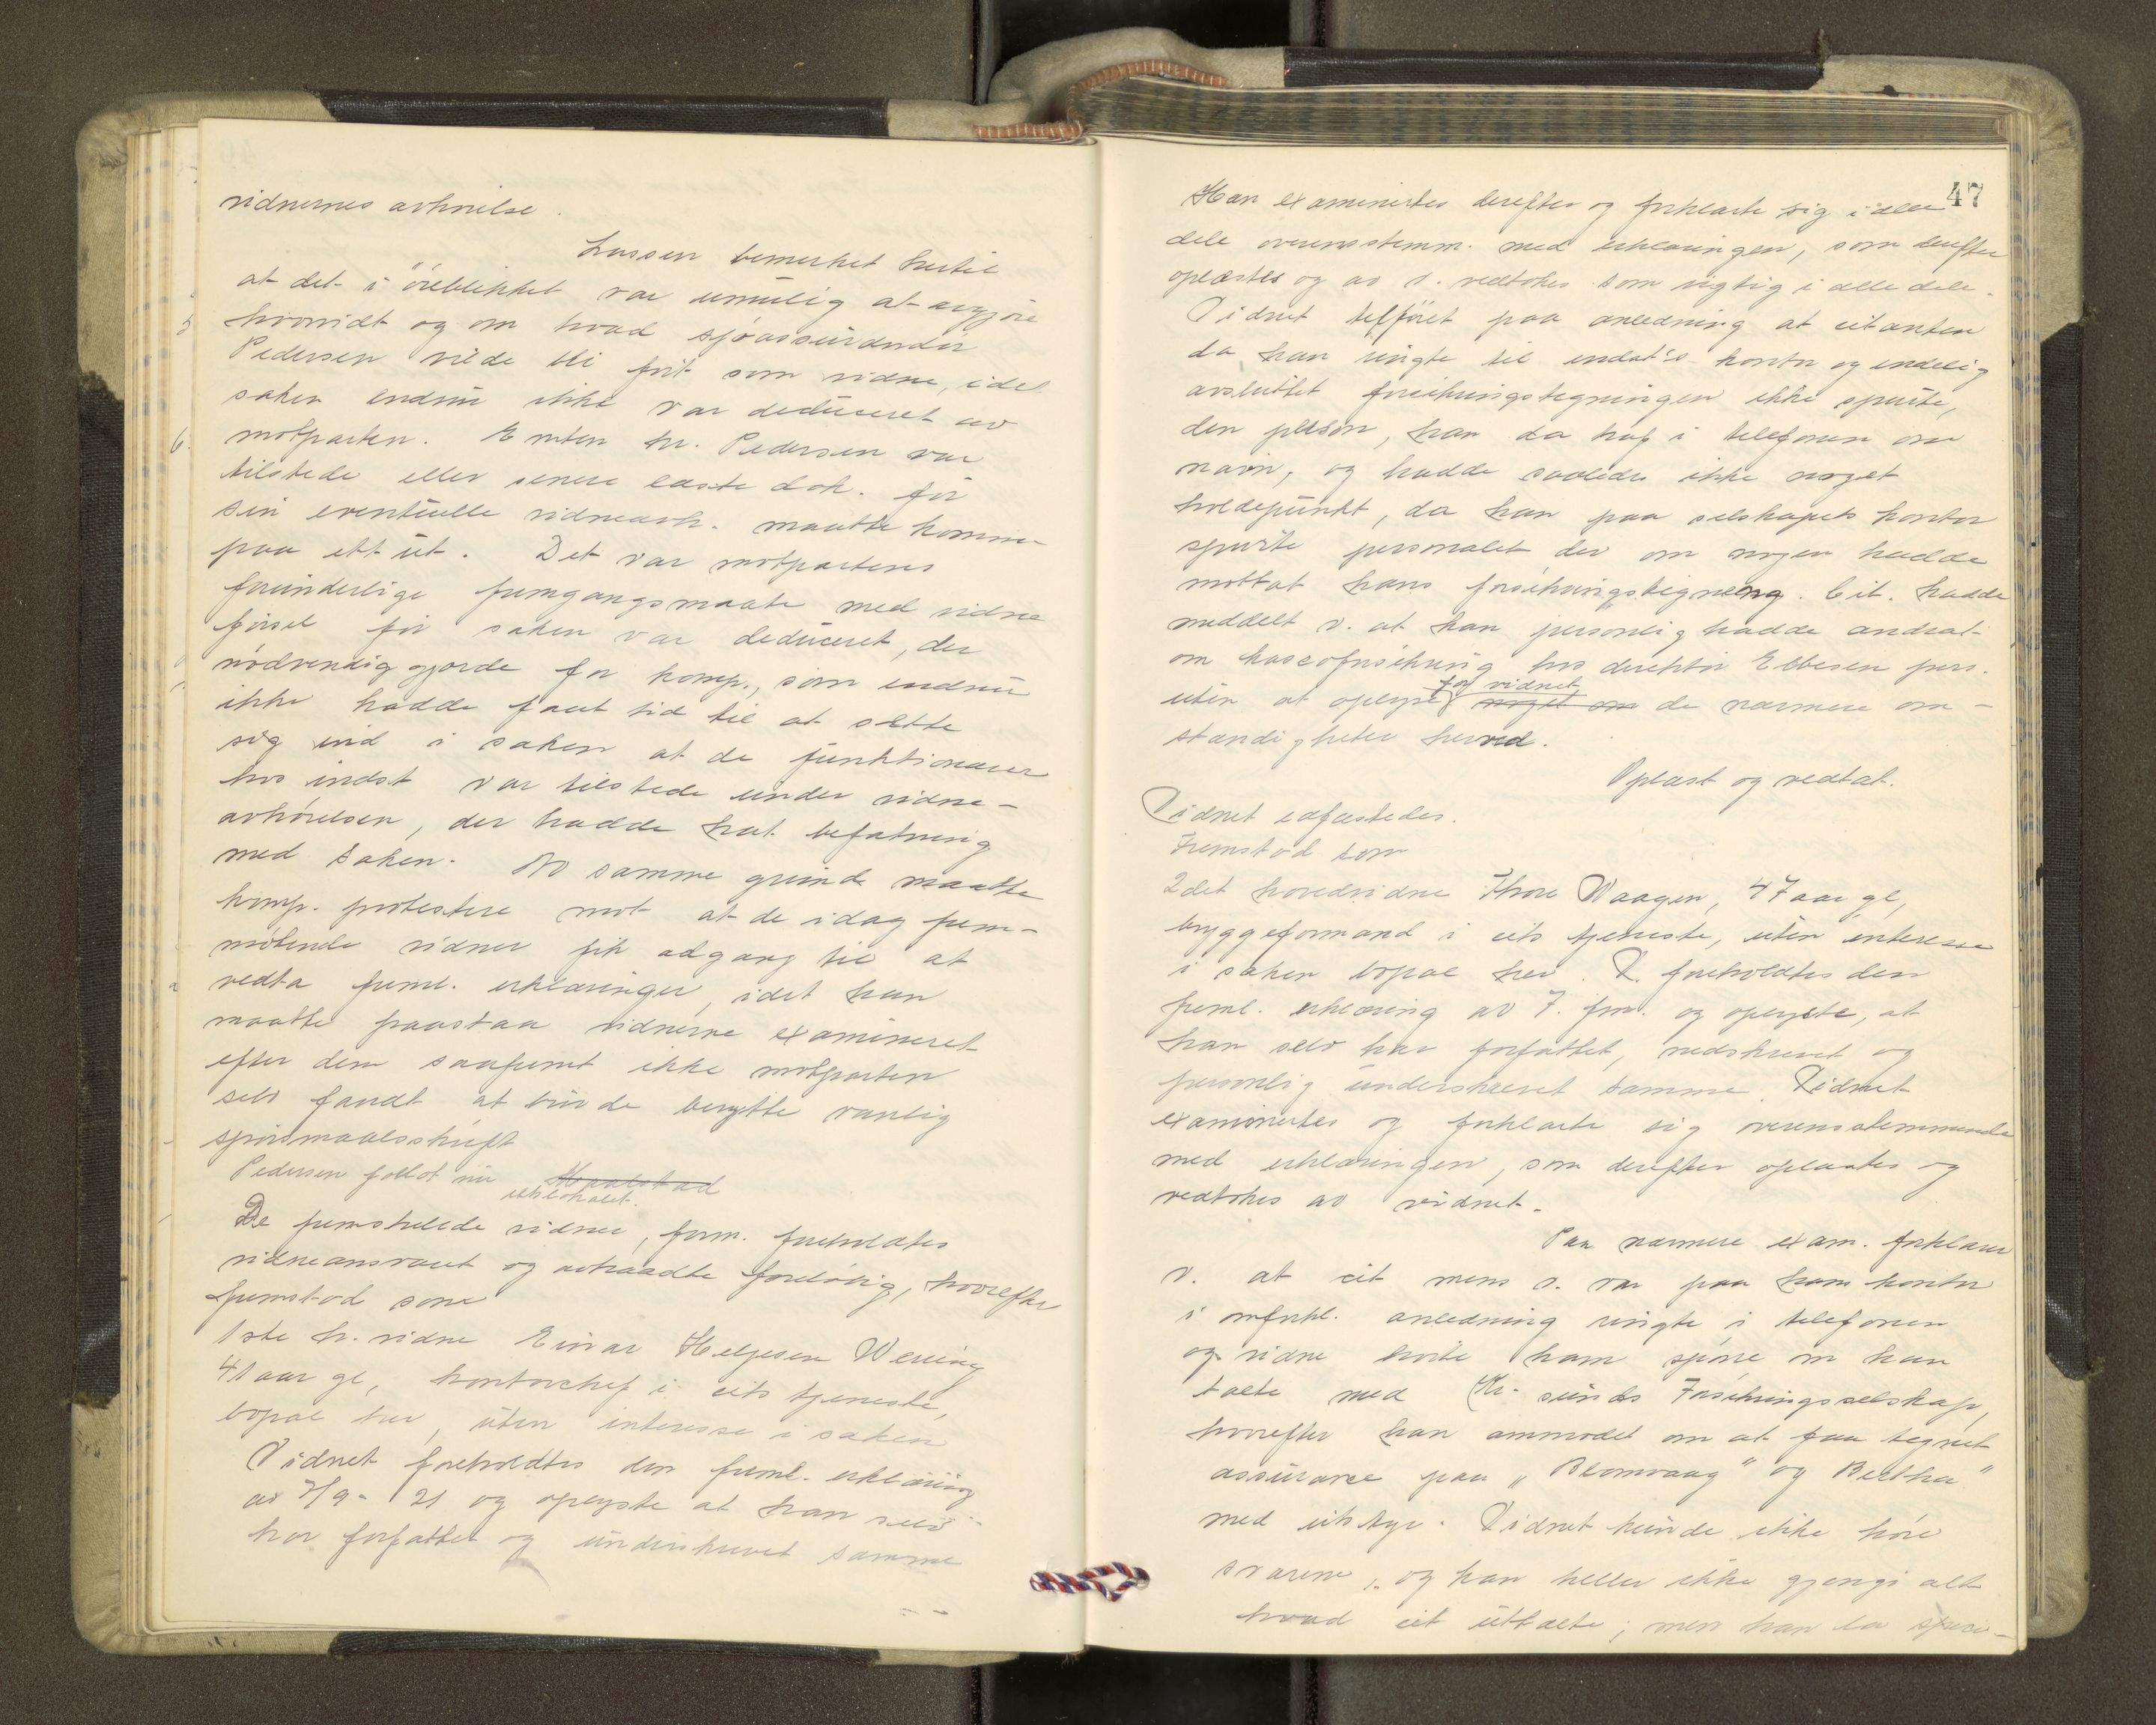 vidnernes avhørelse.
Lassen bemerket hertil
at det i øieblikket var umulig at avgjøre
hvorvidt og om hvad sjøassurandør
Pedersen vilde bli ført som vidne, idet
saken endnu ikke var deduceret av
motparten. Enten hr. Pedersen var
tilstede eller senere læste dok. før
sin eventuelle vidneavh. maatte komme
paa ett ut. Det var motpartens
forunderlige fremgangsmaate med vidne
førsel før saken var deduceret, der
nødvendiggjorde for komp., som endnu
ikke hadde faat tid til at sætte
sig ind i saken at de funktionærer
hos indst var tilstede under vidne-
avhørelsen, der hadde hat befatning
med saken. Av samme grund maatte
komp. protestere mot at de idag frem-
møtende vidner fik adgang til at
vedta freml. erklæringer, idet han
maatte paastaa vidnerne examineret
efter dem saafremt ikke motparten
selv fandt at burde benytte vanlig
spørsmaalsskrift
Pedersen forlot nu Haalstad
retslokalet.
De fremstillede vidner, form. foreholdtes
vidneansvaret og uttraadte foreløbig, hvorefter
fremstod som
1ste h. vidne Einar Helgesen Wering
41 aar gl, kontorchef i cits tjeneste,
bopæl her, uten interesse i saken
Vidnet foreholdtes den freml. erklæring
av 7/9- 21 og oplyste at han selv
har forfattet og underskrevet samme
47
Han examinertes derefter og forklarte sig i alle
dele overensstemm. med erklæringen, som derefter
oplæstes og av v. vedtokes som rigtig i alle dele.
Vidnet tilføiet paa anledning at citanten
da han ringte til indst's kontor og endelig
avsluttet forsikringstegningen ikke spurte,
den person, han da traf i telefonen om
navn, og hadde saaledes ikke noget
holdepunkt, da han paa selskapets kontor
spurte personalet der om nogen hadde
mottat hans forsikringstegning. Cit. hadde
meddelt v. at han personlig hadde andrat
om kascoforsikring hos direktør Ebbesen pers.
uten at oplyse for vidnet noget om de nærmere om-
stændigheter herved.
Oplæst og vedtat.
Vidnet edfæstedes.
Fremstod som
2det hovedvidne Thore Waagen, 47 aar gl,
bryggeformand i cits tjeneste, uten interesse
i saken bopæl her. V. foreholdtes den
freml. erklæring av 7. frm. og oplyste, at
han selv har forfattet, nedskrevet og
personlig underskrevet samme. Vidnet
examinertes og forklarte sig overensstemmende
med erklæringen, som derefter oplæstes og
vedtokes av vidnet.
Paa nærmere exam. forklarer
v. at cit mens v. var paa hans kontor
i omforkl. anledning ringte i telefonen
og vidne hørte ham spørre om han
talte med Kr.sunds Forsikringsselskap,
hvorefter han anmodet om at faa tegnet
assurance paa "Blomvaag" og Bertha"
med utstyr. Vidnet kunde ikke høre
svarene, og kan heller ikke gjengi alt
hvad cit uttalte; men han la